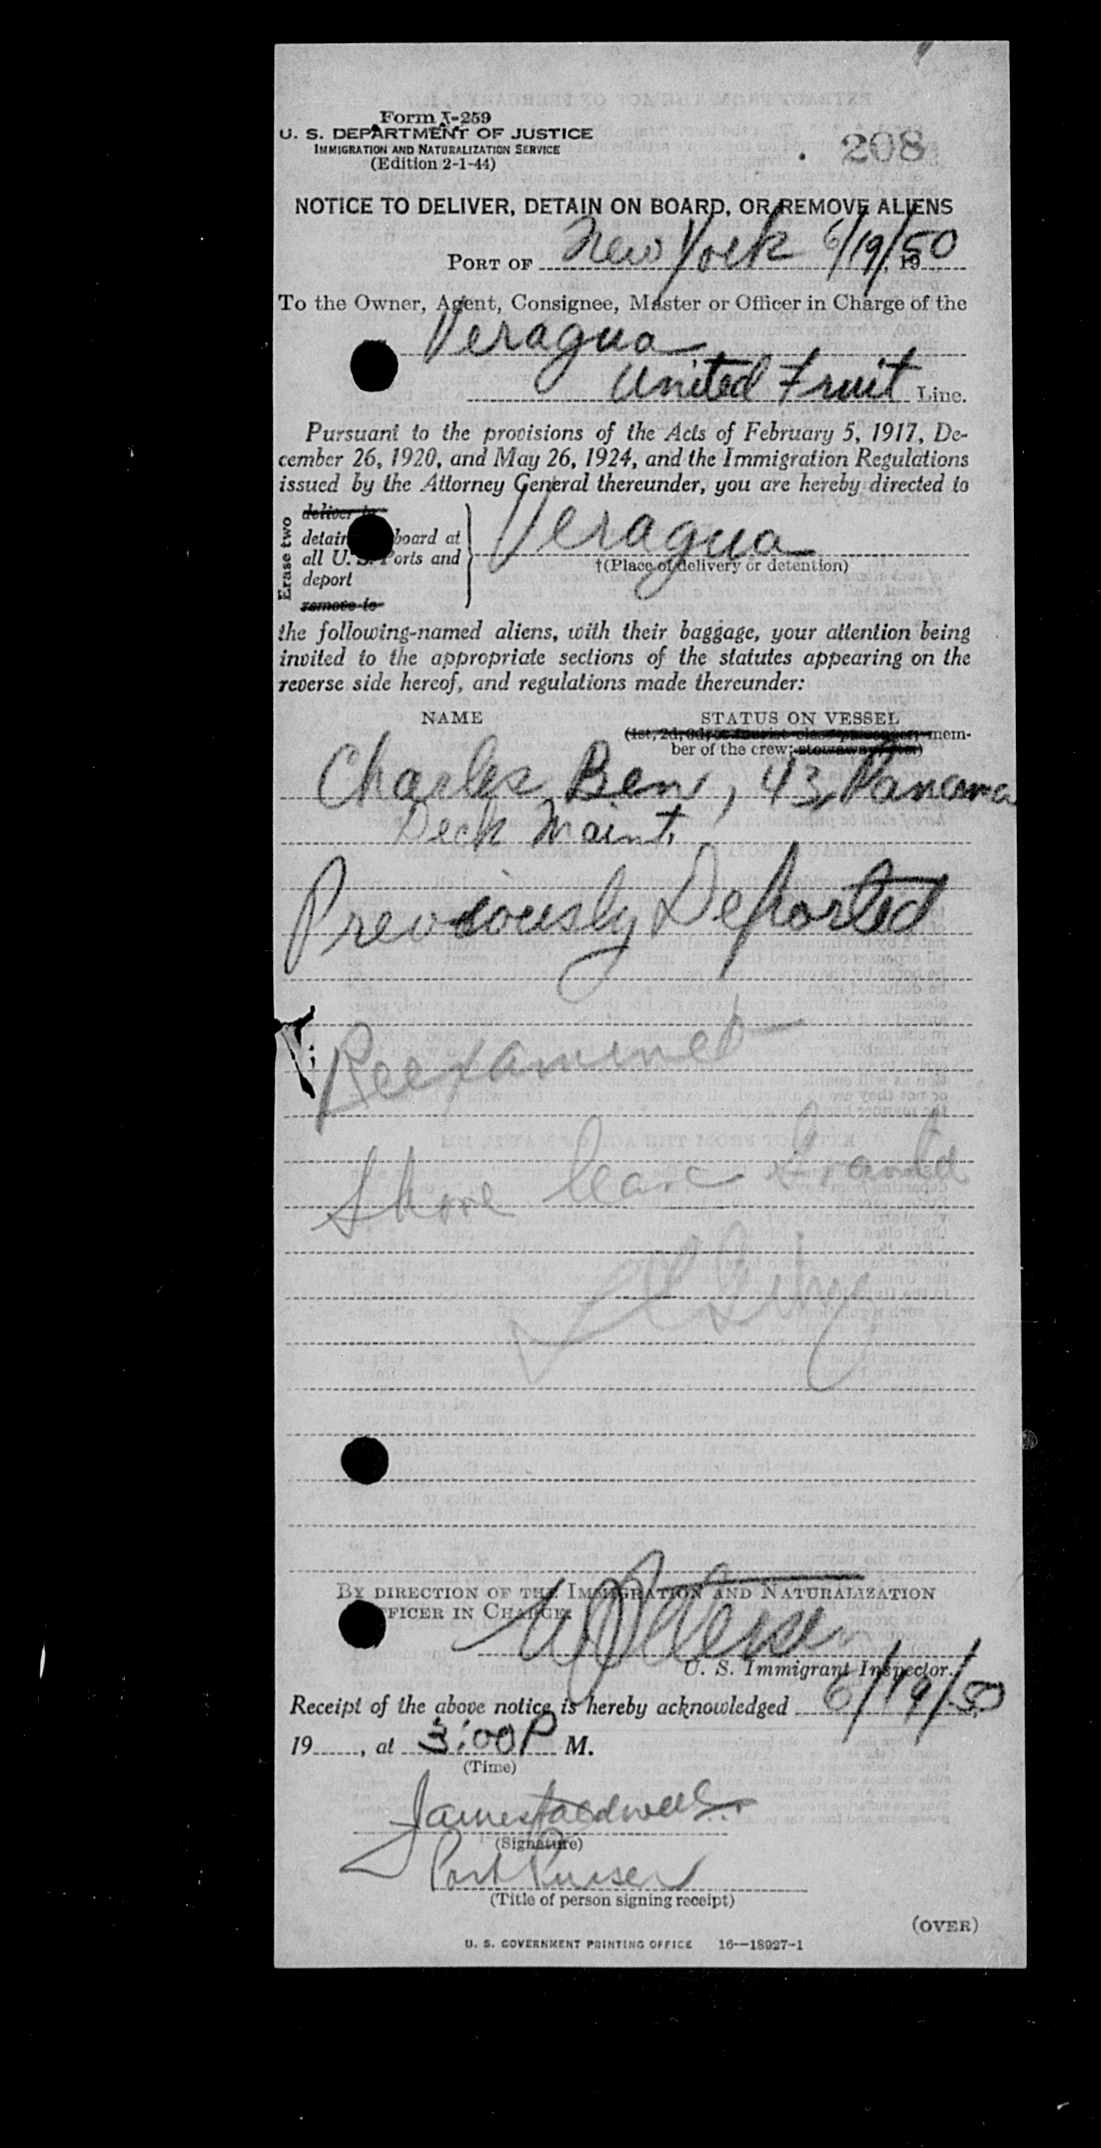 Form I-259
U. S. DEPARTMENT OF JUSTICE
IMMIGRATION AND NATURALIZATION SERVICE
(Edition 2-1-44)
208
NOTICE TO DELIVER, DETAIN ON BOARD, OR REMOVE ALIENS
PORT OF New York 6/19/50, 19
To the Owner, Agent, Consignee, Master or Officer in Charge of the
Veragua
United Fruit Line.
Pursuant to the provisions of the Acts of February 5, 1917, De-
cember 26, 1920, and May 26, 1924, and the Immigration Regulations
issued by the Attorney General thereunder, you are hereby directed to
Erase two
deliver to
detain board at
all U. S. Ports and
deport
remove to
Veragua
†(Place of delivery or detention)
the following-named aliens, with their baggage, your attention being
invited to the appropriate sections of the statutes appearing on the
reverse side hereof, and regulations made thereunder:
NAME STATUS ON VESSEL
(1st, 2d, 3d, or tourist class passenger, mem-
ber of the crew, stowaway, etc.)
Charles Ben, 43, Panama
Deck Maint.
Previously Deported
Reexamined
Shore leave Granted
BY DIRECTION OF THE IMMIGRATION AND NATURALIZATION
OFFICER IN CHARGE:
U. S. Immigrant Inspector.
Receipt of the above notice is hereby acknowledged 6/19/50,
19......, at 3:00 P M.
(Time)
James Caldwell
(Signature)
Port Purser
(Title of person signing receipt)
(OVER)
U. S. GOVERNMENT PRINTING OFFICE 16—18927-1